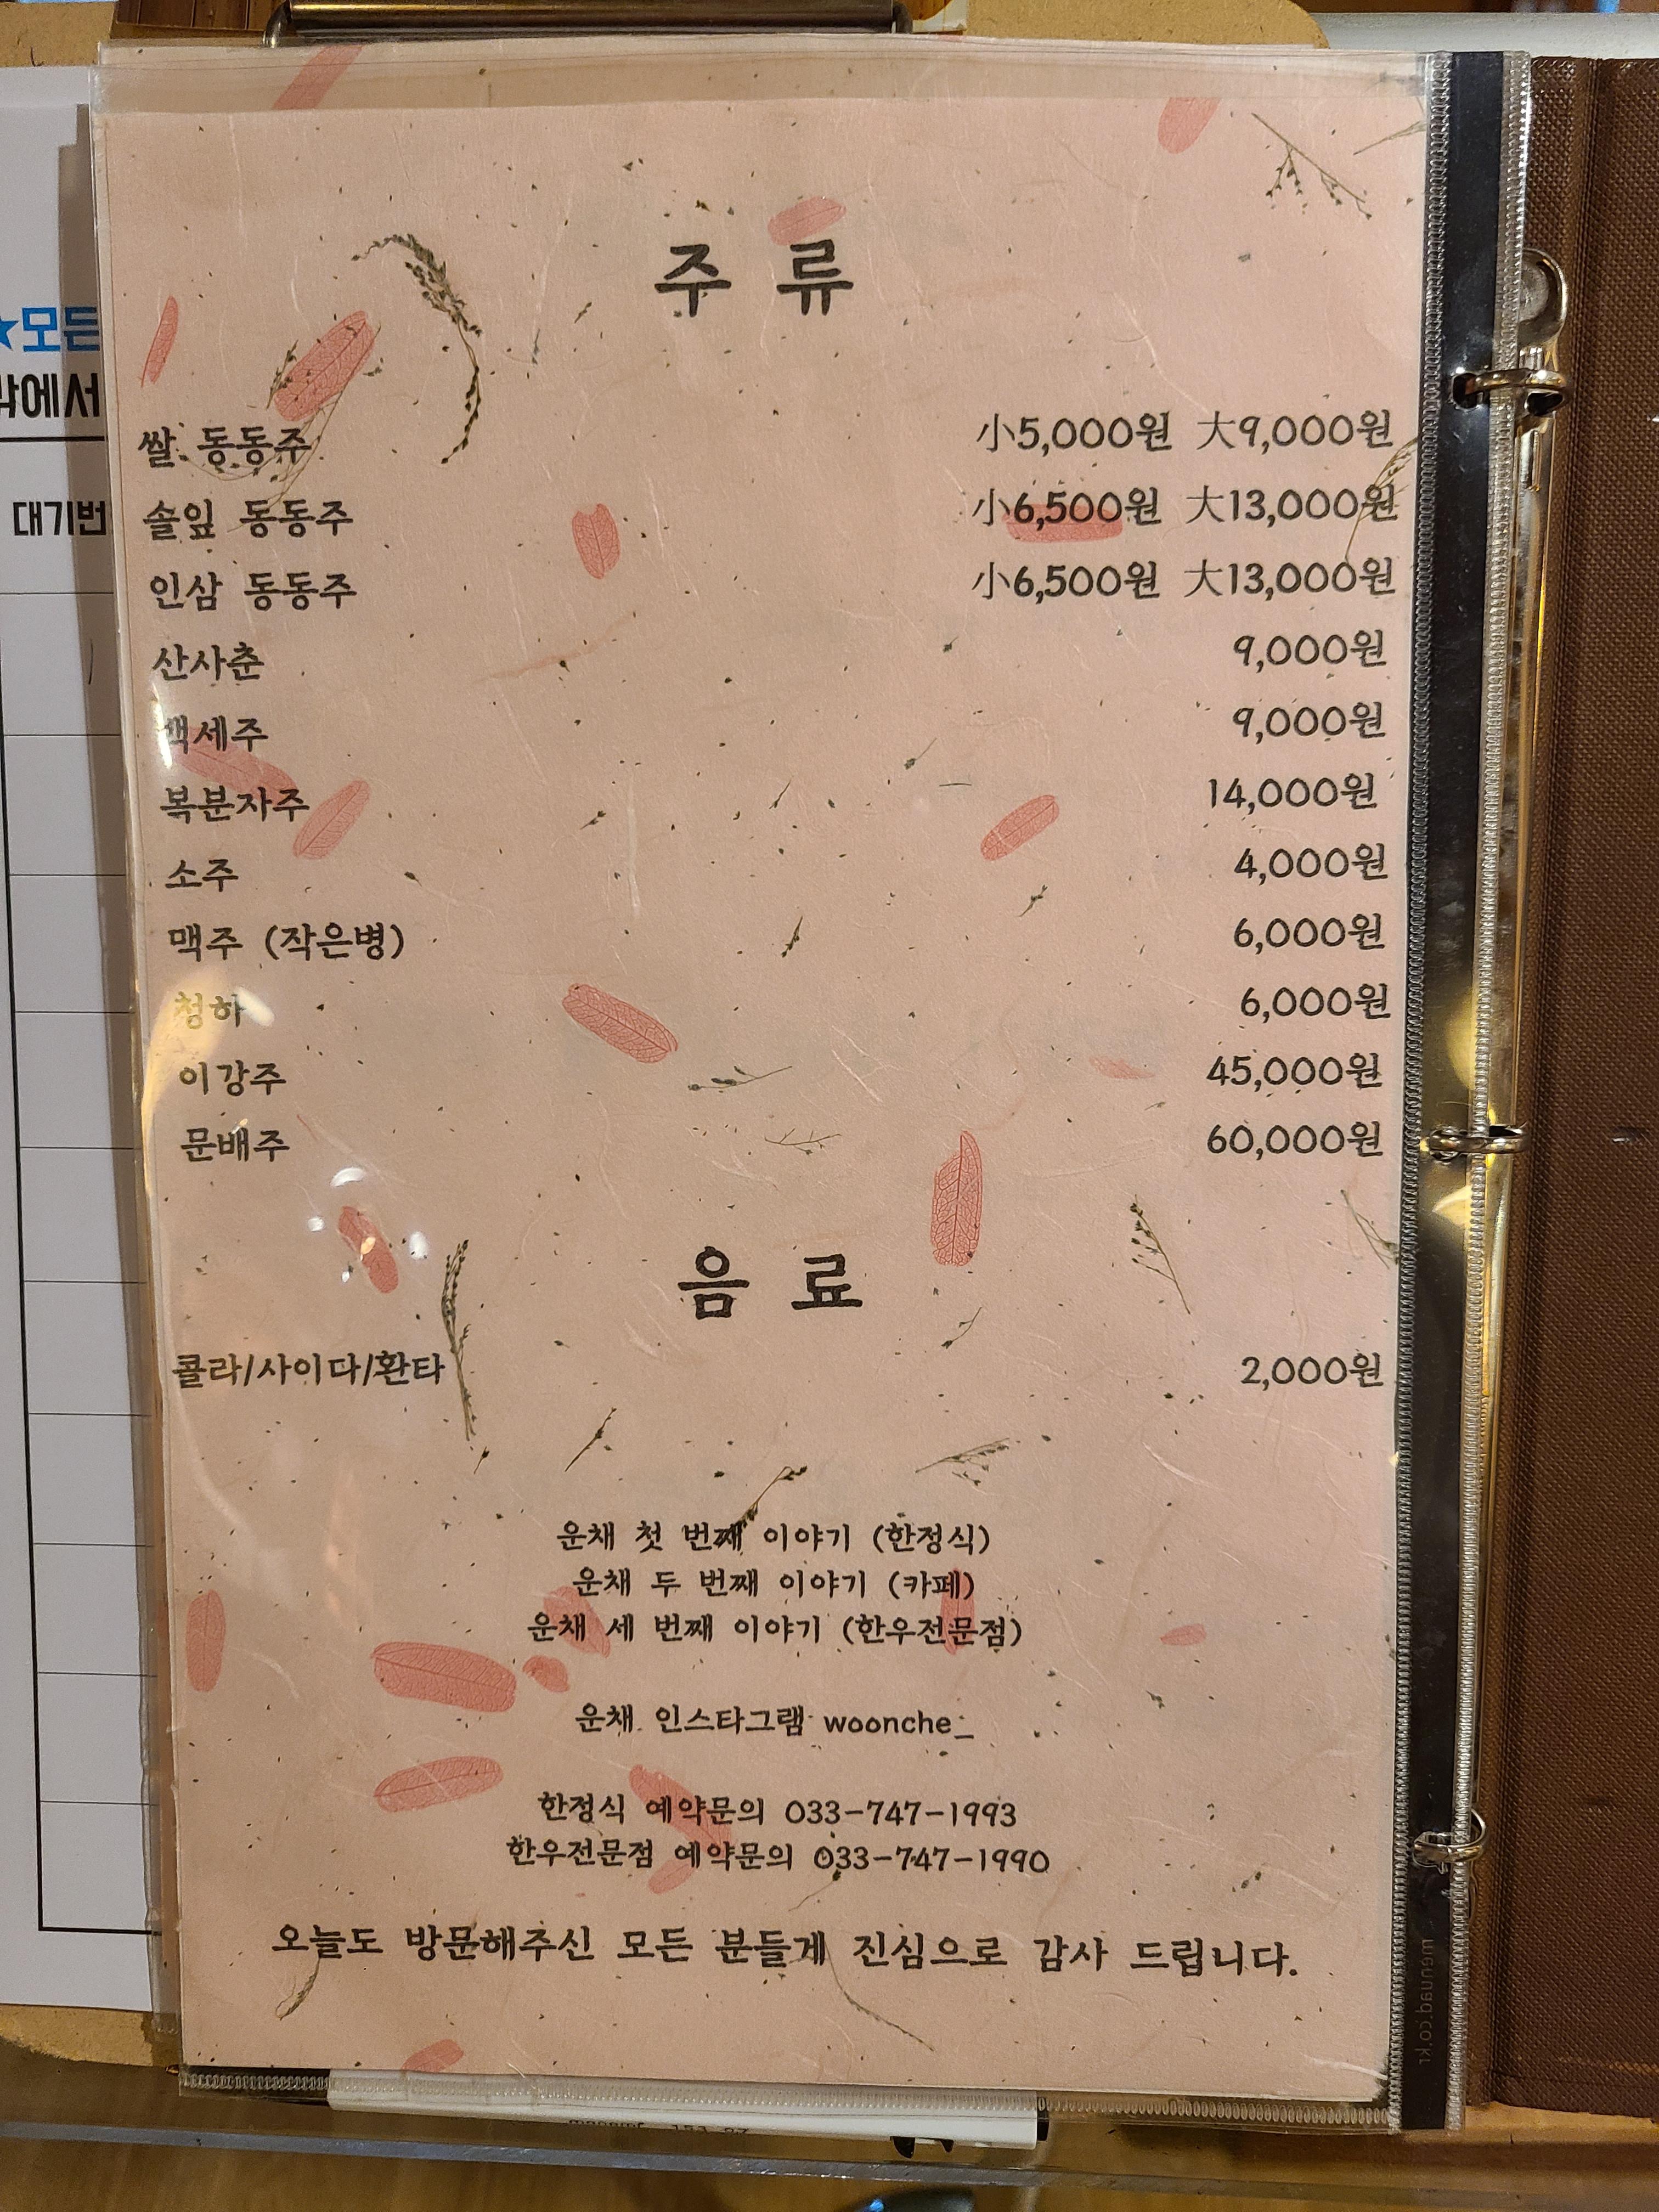 주 류
쌀 동동주 小5,000원 大9,000원
솔잎 동동주 小6,500원 大13,000원
인삼 동동주 小6,500원 大13,000원
산사춘 9,000원
백세주 9,000원
복분자주 14,000원
소주 4,000원
맥주 (작은병) 6,000원
청하 6,000원
이강주 45,000원
문배주 60,000원
음 료
콜라/사이다/환타 2,000원
운채 첫 번째 이야기 (한정식)
운채 두 번째 이야기 (카페)
운채 세 번째 이야기 (한우전문점)
운채 인스타그램 woonche_
한정식 예약문의 033-747-1993
한우전문점 예약문의 033-747-1990
오늘도 방문해주신 모든 분들게 진심으로 감사 드립니다.
★모든
밖에서
대기번
menuad.co.kr